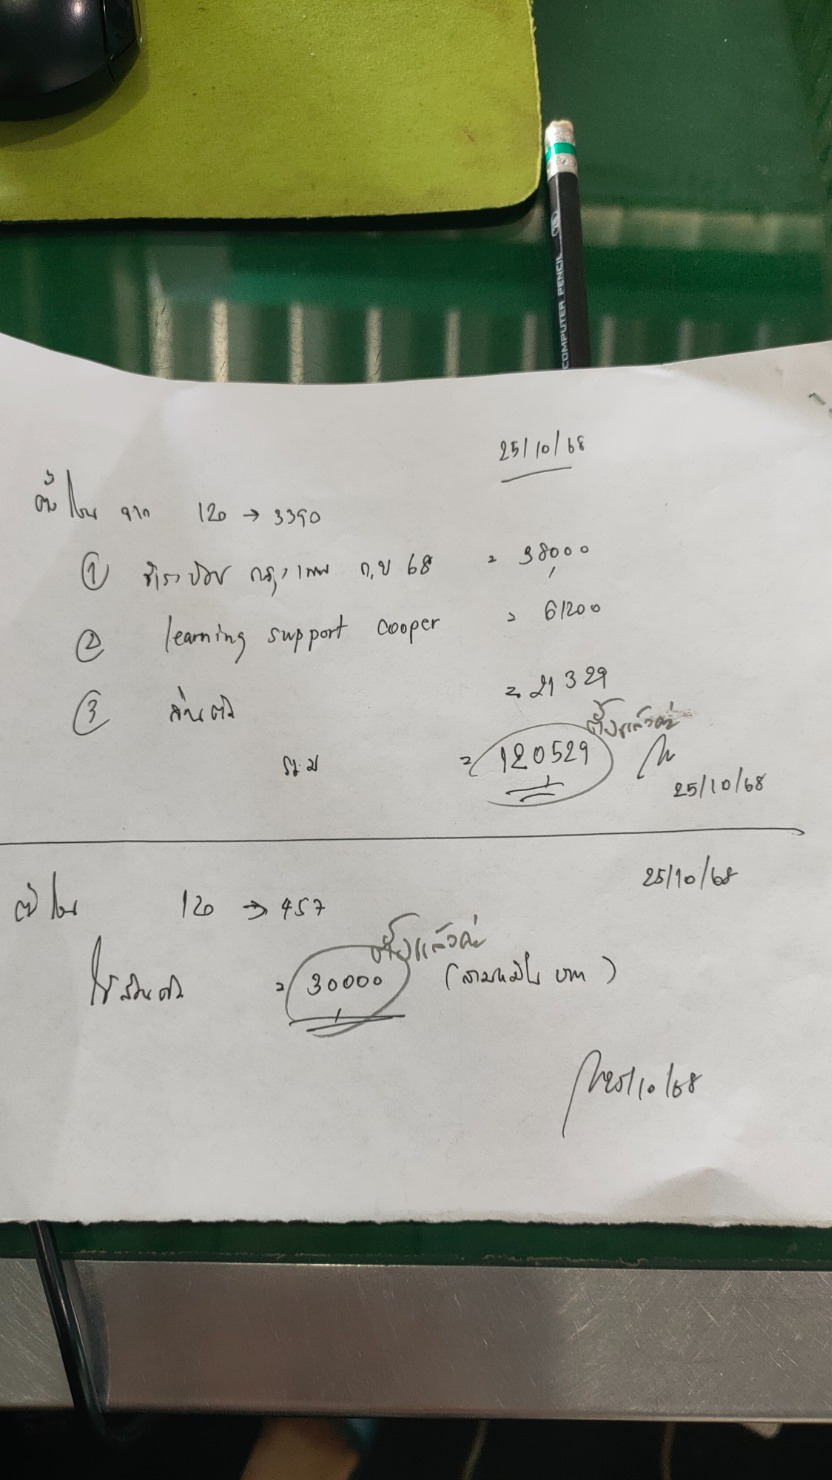 COMPUTER PENCIL
25/10/68
ตั้งโอน จาก 120 → 3390
① กรุงเทพ ก.ย 68 = 38,000
② learning support cooper = 61200
③ ส่วนตัว = 21329
ตั้งแล้วค่ะ
รวม = 120529
25/10/68
25/10/68
ตั้งโอน 120 → 457
ตั้งแล้วค่ะ
ใช้ส่วนตัว = 30000 (สามหมื่น บาท)
25/10/68